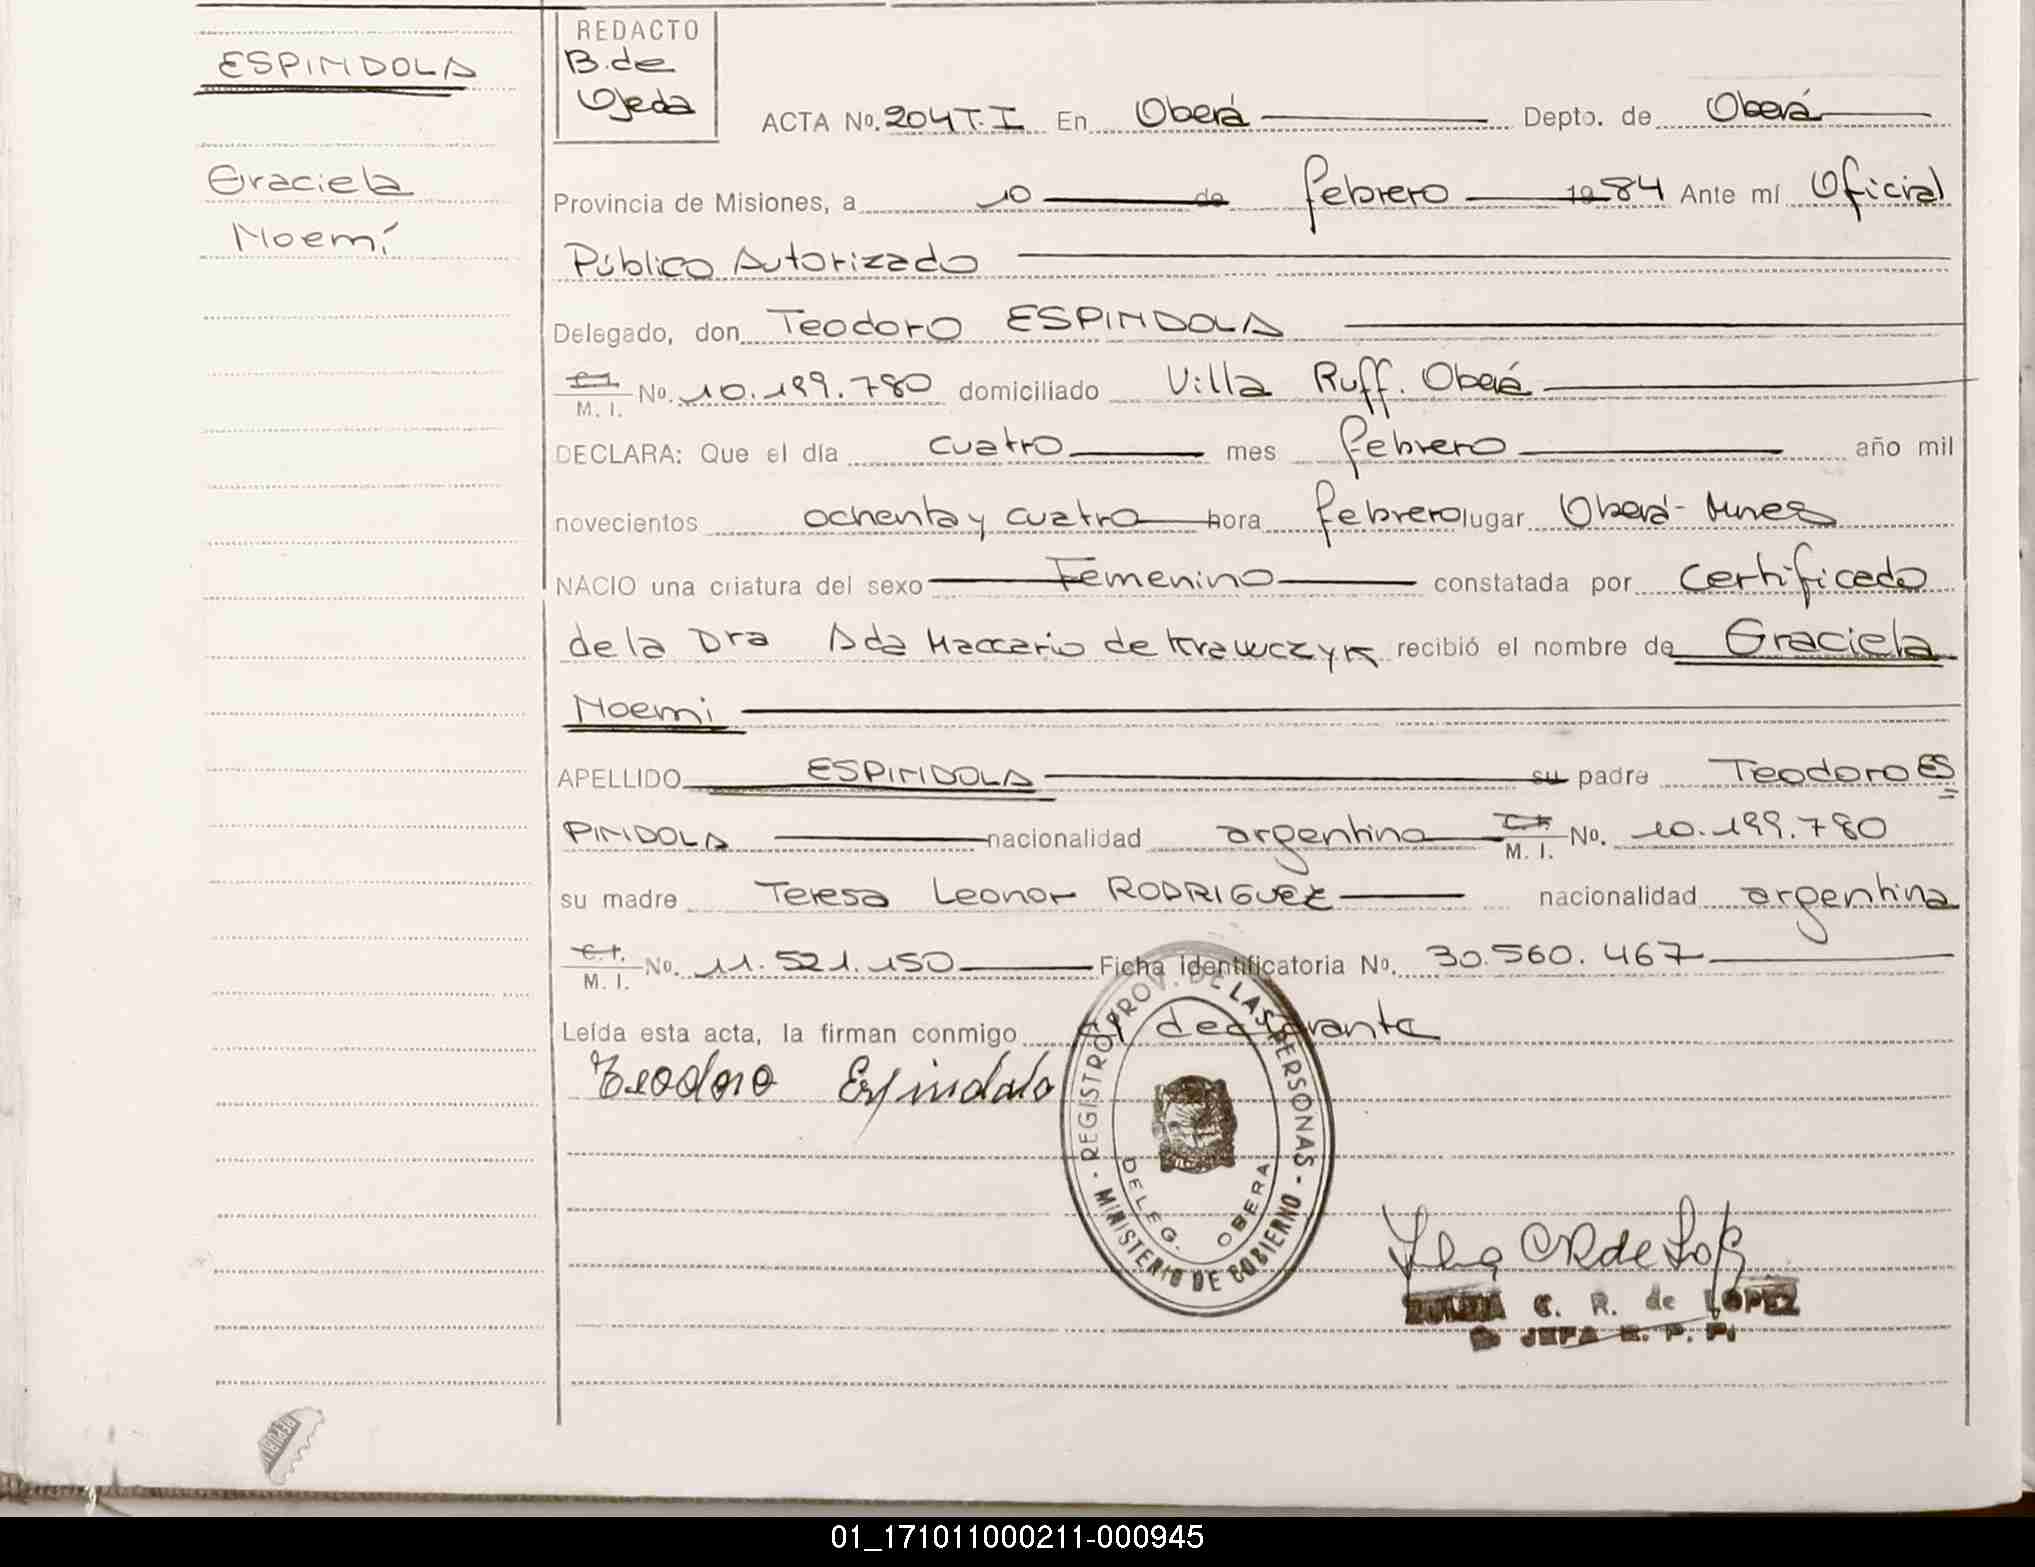 ESPINDOLA
Graciela
Noemí
REDACTO
B. de
Ojeda
ACTA No. 204 T. I En Oberá Depto. de Oberá
Provincia de Misiones, a 10 de febrero 1984 Ante mí Oficial
Público Autorizado
Delegado, don Teodoro ESPINDOLA
C.I.
M. I. No. 10.199.780 domiciliado Villa Ruff. Oberá
DECLARA: Que el día cuatro mes febrero año mil
novecientos ochenta y cuatro hora febrero lugar Oberá-
NACIO una criatura del sexo Femenino constatada por Certificado
de la Dra Ada Maccario de Krawczyk recibió el nombre de Graciela
Noemi
APELLIDO ESPINDOLA su padre Teodoro ES
PINDOLA nacionalidad argentina C.I.
M. I. No. 10.199.780
su madre Teresa Leonor RODRIGUEZ nacionalidad argentina
C.I.
M. I. No. 11.521.150 Ficha identificatoria No. 30.560.467
Leída esta acta, la firman conmigo El declarante
Teodoro Espindola
REGISTRO PROV. DE LAS PERSONAS
MINISTERIO DE GOBIERNO
DELEG. OBERA
C. R. de LOPEZ
JEFA
01_171011000211-000945